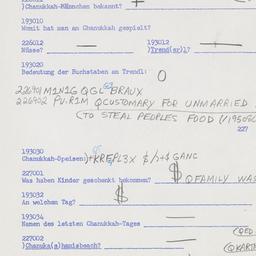 )Chanukka-Männchen bekannt?
193010
Womit hat man an Chanukkah gespielt?
226012 193012
Nüsse? )Trend(er)l?
193020
Bedeutung der Buchstaben am Trendl: O
226901 M1N1G QGL BRAUX
226902 PU.R1M QCUSTOMARY FOR UNMARRIED
(TO STEAL PEOPLES FOOD (/195050
227
193030
Chanukkah-Speisen:)+KREPL3X $/)+$ GANG
227001
Was haben Kinder geschenkt bekommen? $ QFAMILY WAS
193032
An welchem Tag? $
193034
Namen des letzten Chanukkah-Tages
227002 (QED
)Chanuka(s)hanisbesch? (QKART